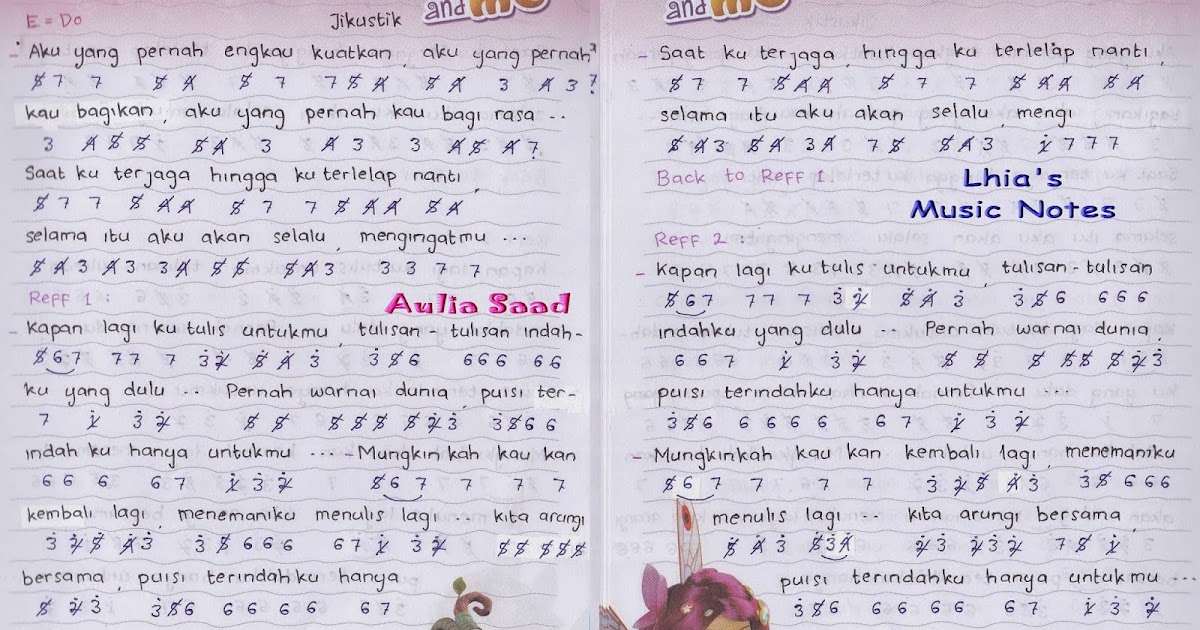 and me
E = Do Jikustik
- Aku yang pernah engkau kuatkan, aku yang pernah
5̸ 7 7 5̸ 4̸ 5̸ 7 7 5̸ 4̸ 5̸ 4̸ 3 4̸ 3
kau bagikan, aku yang pernah kau bagi rasa ..
3 4̸ 5̸ 5̸ 5̸ 4̸ 3 4̸ 3 3 3 4̸ 5̸ 4̸ 7
Saat ku terjaga hingga ku terlelap nanti,
5̸ 7 7 5̸ 4̸ 4̸ 5̸ 7 7 5̸ 4̸ 4̸ 5̸ 4̸
selama itu aku akan selalu, mengingatmu ...
5̸ 4̸ 3 4̸ 3 3 4̸ 5̸ 5̸ 5̸ 4̸ 3 3 3 7 7
Reff 1 :
Aulia Saad
- Kapan lagi ku tulis untukmu, tulisan - tulisan indah-
5̸ 6 7 7 7 7 3̇ 2̸̇ 5̸̇ 4̸̇ 3̇ 3̇ 5̸ 6 6 6 6 6 6
ku yang dulu ... Pernah warnai dunia, puisi ter-
7 1̸̇ 3̇ 2̸̇ 5̸ 5̸ 5̸ 5̸ 5̸ 5̸ 2̸̇ 3̇ 3̇ 5̸ 6 6
indah ku hanya untukmu ... - Mungkin kah kau kan
6 6 6 6 7 1̸̇ 3̇ 2̸̇ 5̸ 6 7 7 7 7
kembali lagi, menemaniku menulis lagi ... kita arungi
3̇ 2̸̇ 5̸ 4̸̇ 3̇ 3̇ 5̸ 6 6 6 6 7 1̸̇ 3̇ 2̸̇ 5̸ 5̸ 5̸ 5̸ 5̸
bersama, puisi terindah ku hanya
5̸ 2̸̇ 3̇ 3̇ 5̸ 6 6 6 6 6 6 7
and me
- Saat ku terjaga, hingga ku terlelap nanti,
5̸ 7 7 5̸ 4̸ 4̸ 5̸ 7 7 5̸ 4̸ 4̸ 5̸ 4̸
selama itu aku akan selalu, mengi
5̸ 4̸ 3 5̸ 4̸ 3 4̸ 7 5̸ 5̸ 4̸ 3 1̸̇ 7 7 7
Back to Reff 1.
Lhia's
Music Notes
Reff 2 :
- Kapan lagi ku tulis untukmu, tulisan - tulisan
5̸ 6 7 7 7 7 3̇ 2̸̇ 5̸̇ 4̸̇ 3̇ 3̇ 5̸ 6 6 6 6
indahku yang dulu .. Pernah warnai dunia,
6 6 7 1̸̇ 3̇ 2̸̇ 5̸ 5̸ 5̸ 5̸ 5̸ 5̸ 2̸̇ 3̇
puisi terindahku hanya untukmu ...
3̇ 5̸ 6 6 6 6 6 6 7 1̸̇ 3̇ 2̸̇
- Mungkinkah kau kan kembali lagi, menemaniku
5̸ 6 7 7 7 7 3̇ 2̸̇ 5̸ 4̸̇ 3̇ 3̇ 5̸ 6 6 6
menulis lagi ... kita arungi bersama
5̸̇ 4̸̇ 3̇ 5̸̇ 3̇ 4̸̇ 2̸̇ 3̇ 2̸̇ 3̇ 2̸̇ 7 5̸ 1̸̇
puisi terindahku hanya untuk mu ...
3̇ 5̸ 6 6 6 6 6 6 7 1̸̇ 3̇ 2̸̇